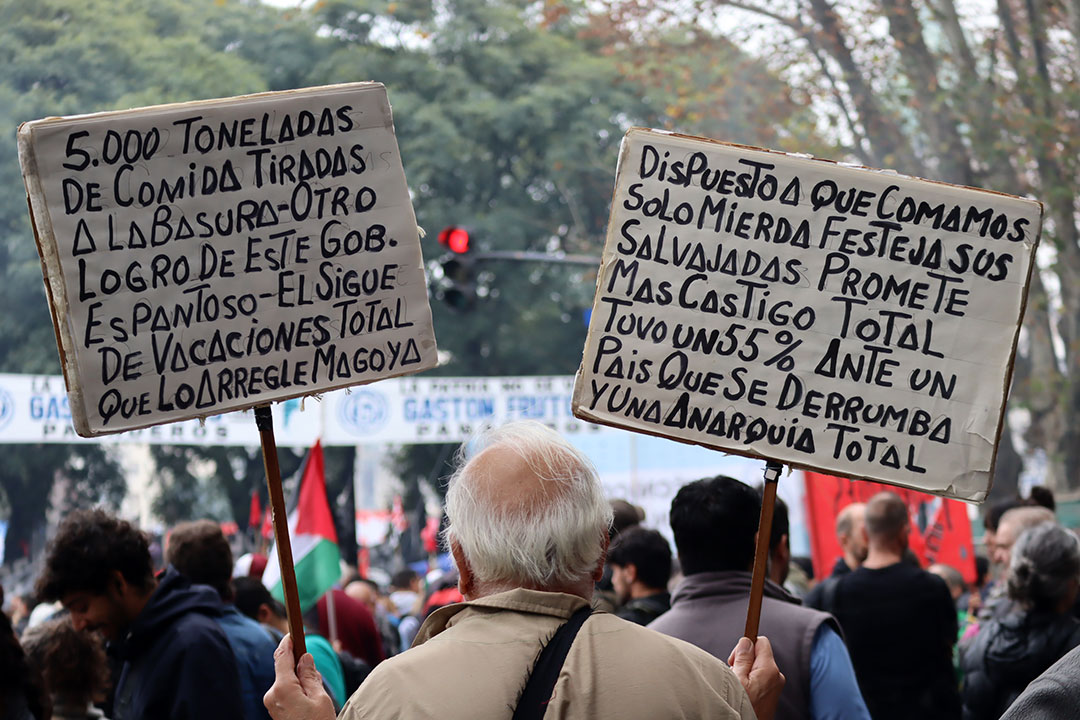 5.000 TONELADAS
DE COMIDA TIRADAS
A LA BASURA-OTRO
LOGRO DE ESTE GOB.
ESPANTOSO-EL SIGUE
DE VACACIONES TOTAL
QUE LO ARREGLE MAGOYA
DISPUESTO A QUE COMAMOS
SOLO MIERDA FESTEJA SUS
SALVAJADAS PROMETE
MAS CASTIGO TOTAL
TUVO UN 55% ANTE UN
PAIS QUE SE DERRUMBA
Y UNA ANARQUIA TOTAL
GASTON